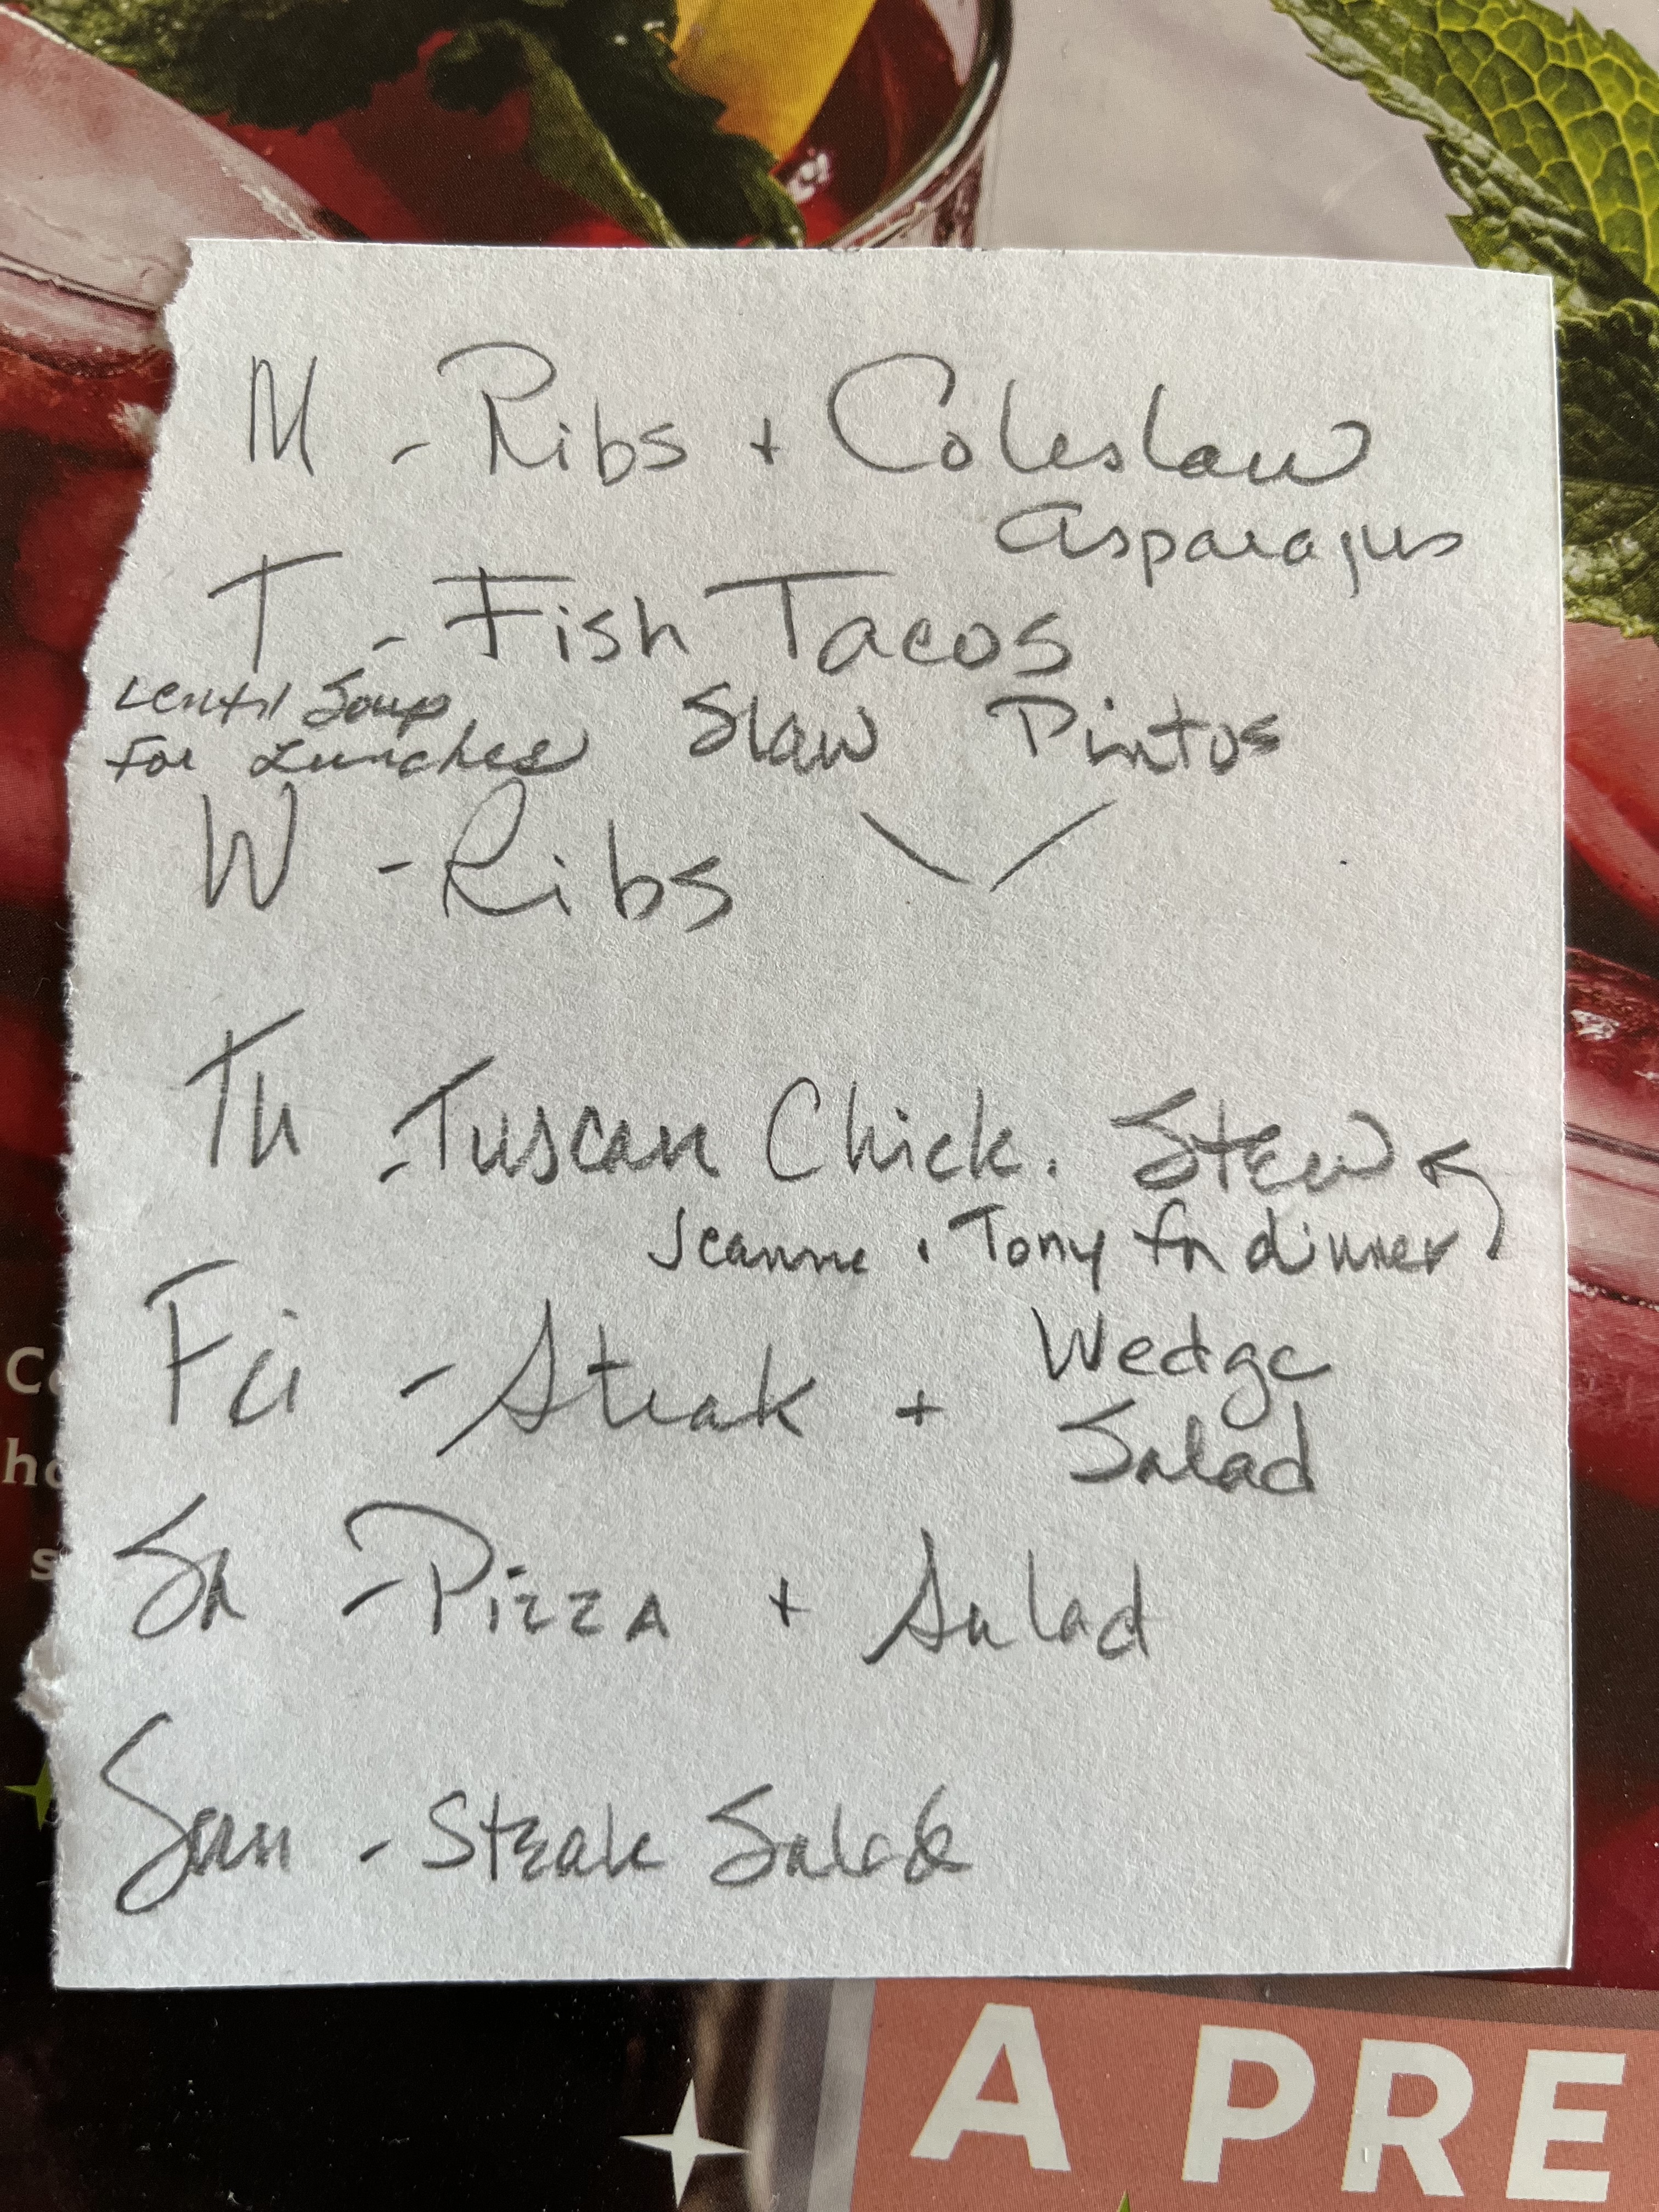 M - Ribs + Coleslaw
Asparagus
T - Fish Tacos
Lentil Soup
For Lunches
Slaw Pintos
W - Ribs
Th - Tuscan Chick. Stew
Jeanne + Tony for dinner
Fri - Steak + Wedge
Salad
Sa - Pizza + Salad
Sun - Steak Salad
A PRE